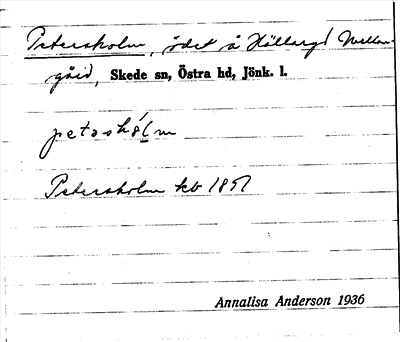 Petersholm, ödet å Hällaryd Mellan-
gård, Skede sn, Östra hd, Jönk. l.
petəshǻl̲m
Petersholm kb 1851
Annalisa Anderson 1936